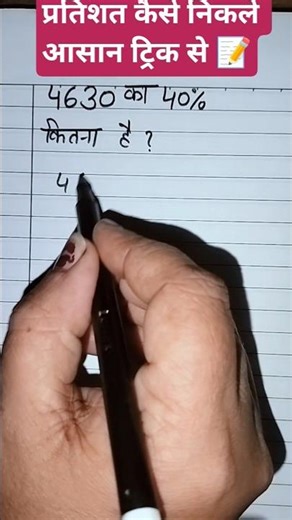 प्रतिशत कैसे निकले
आसान ट्रिक से 📝
4630 का 40%
कितना है ?
4